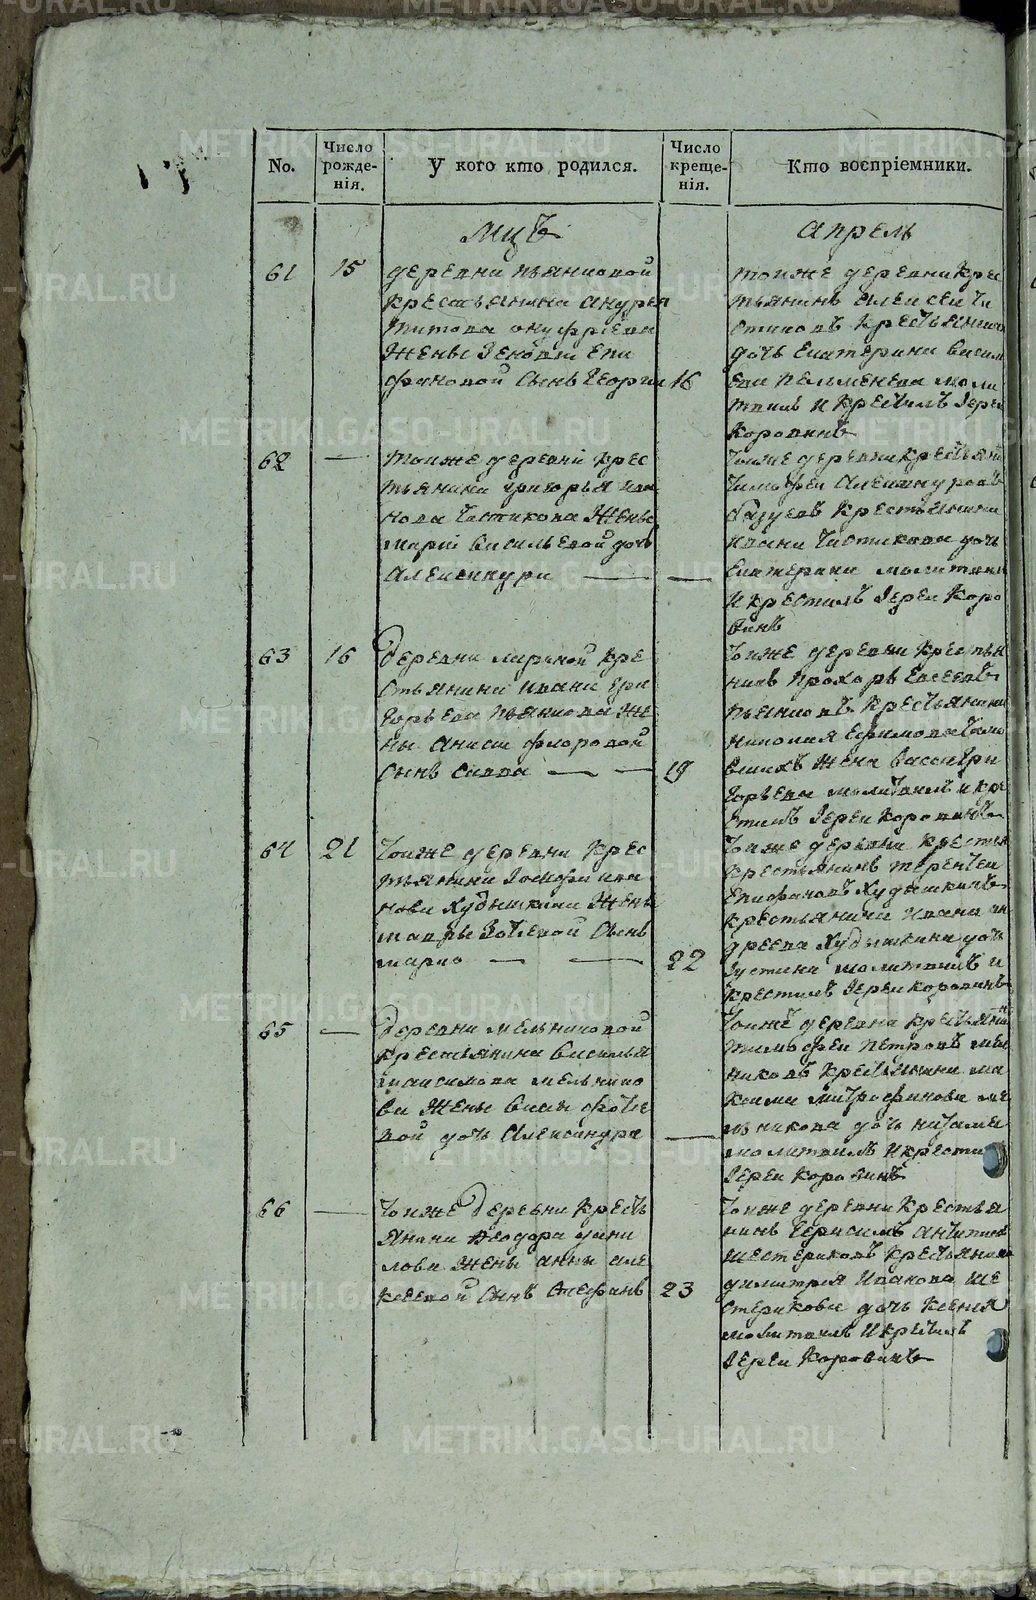 No.
Число рожде- нія.
У кого кто родился.
Число креще- нія.
Кто воспріемники.
Мцъ
Апрель
61
15
деревни Пьянковой
крестьянина Андрея
Титова Ануфріева
жены Зеновіи Епи
фановой сынъ Георгии
16
тоиже деревни Крес
тьянинъ Алексеи Чи
стиковъ крестьянина
дочь Екатерина Васил
ева Пельменева моли
твилъ и крестилъ Іереи
Коровинъ
62
—
тоиже деревни крес
тьянина Григорья Ива
нова Чистикова жены
Маріи Васильевой дочь
Александра
—
тоиже деревни крестьяни
Тимофеи Александровъ
крестьянина
Ивана Чистикова дочь
Екатерина молитвилъ
и крестилъ Іереи Коро
винъ
63
16
Деревни кре
стьянина Ивана Гри
горьева Пьянкова же
ны Анисіи Флоровой
сынъ Савва
19
тоиже деревни крестья
нинъ Прохоръ Евсеевъ
Пьянковъ крестьянина
Николая Ефимова
жена Васса Гри
горьева молитвилъ и кре
стилъ Іереи Коровинъ
64
21
тоиже деревни Крес
тьянина Іосифа Ива
нова Худышкина жены
Мавры Зотеевой сынъ
Марко
22
тоиже деревни кресть
крестьянинъ Терентеи
Епифановъ Худышкинъ
крестьянина Ивана Ан
дреева Худышкина дочь
Іустина молитвилъ и
крестилъ Іереи Коровинъ
65
—
Деревни Мельниковой
крестьянина Василья
Максимова Мельнико
ва жены
вой дочь Александра
—
тоиже деревни крестьяни
Тимофеи Петровъ Мел
никовъ крестьянина Ма
ксима Митрофанова Ме
льникова дочь
молитвилъ и крести
Іереи Коровинъ
66
—
тоиже Деревни кресть
янина Феодора Дани
лова жены Анны Але
ксеевой сынъ Стефанъ
23
тоиже деревни крестья
нинъ Герасимъ Антипинъ
Шестериковъ крестьянина
Димитрея Иванова Ше
стерикова дочь Ксения
молитвилъ и крестилъ
Іереи Коровинъ
METRIKI.GASO-URAL.RU